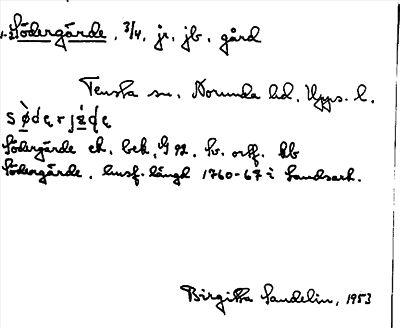 Södergärde, 3/4, jr, jb, gård
Tensta sn, Norunda hd, Upps. l.
Södergärde ek. bek. G 92. kv. orig. kb
Södergärde. husf. längd 1760-67 i Landsark.
Birgitta Sandelin, 1953